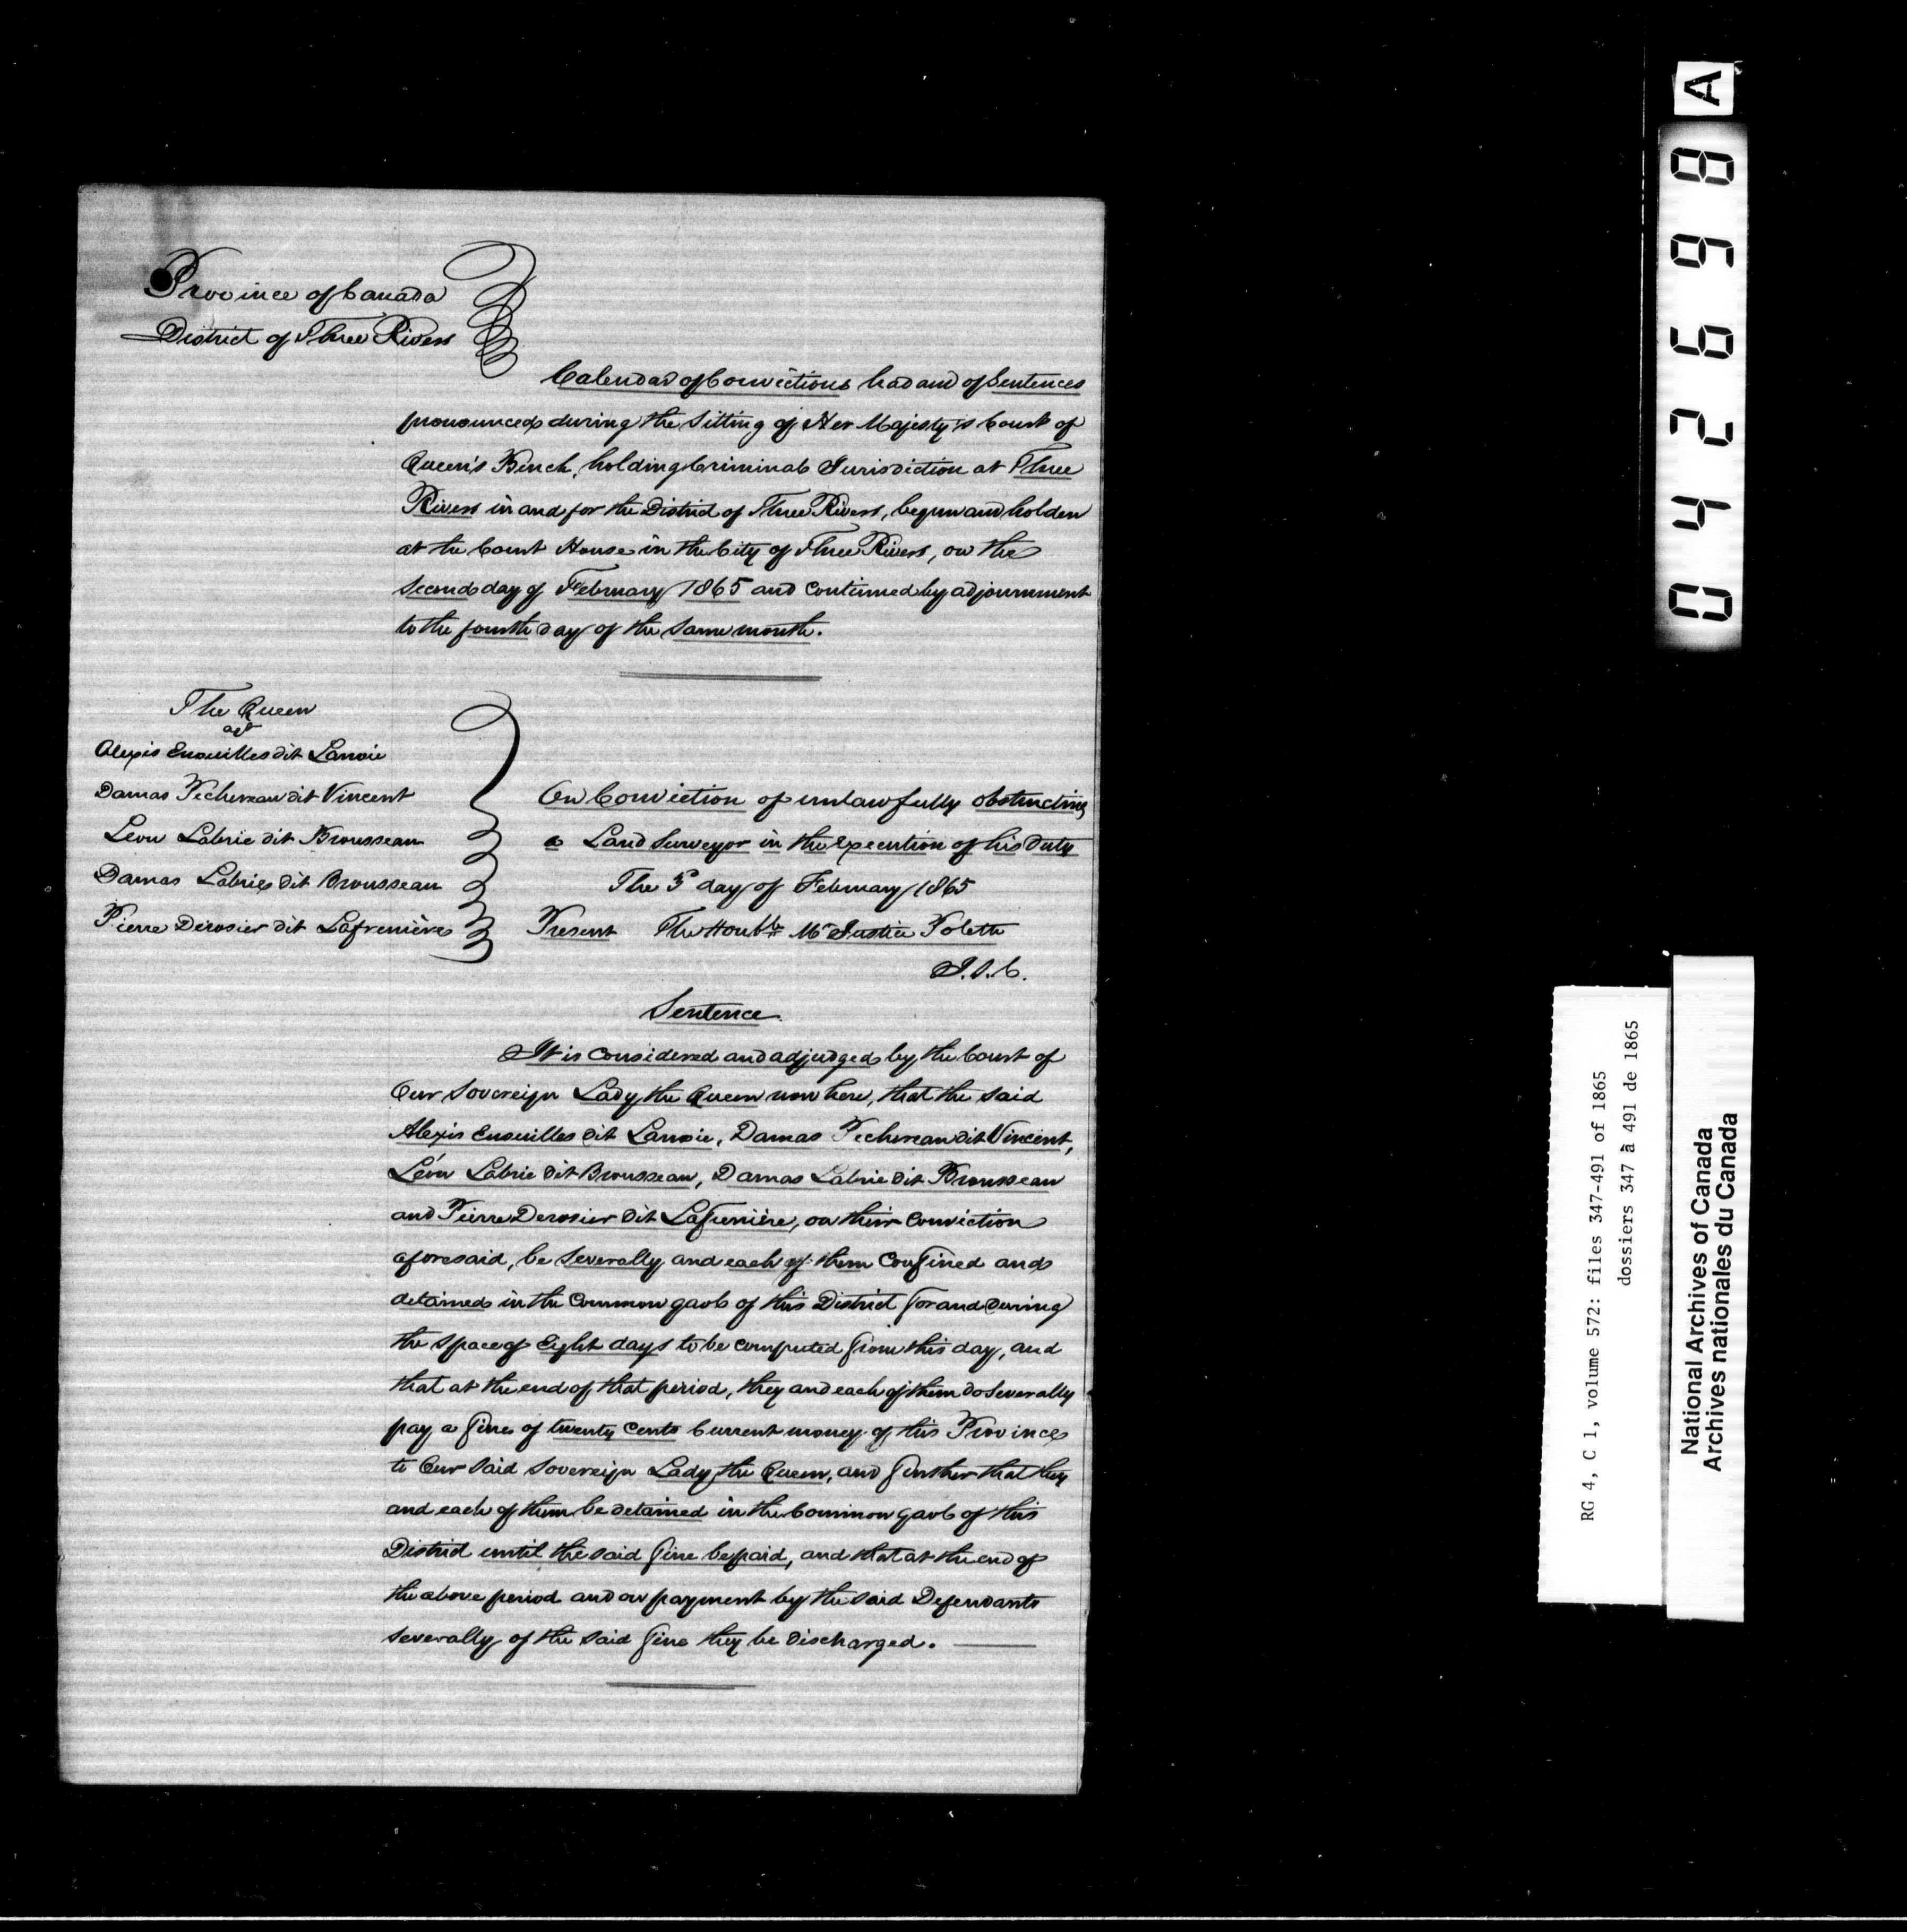 Province of Canada
District of Three Rivers
Calendar of Convictions had and of Sentences
pronounced during the Sitting of Her Majesty's Court of
Queen's Bench, holding Criminal Jurisdiction at Three
Rivers in and for the District of Three Rivers, begun and holden
at the Court House in the City of Three Rivers, on the
Second day of February 1865 and continued by adjournment
to the fourth day of the same month.
The Queen
agt
Alexis Enouilles dit Lanoie
Damas Pechereau dit Vincent
Leon Labrie dit Brousseau
Damas Labrie dit Brousseau
Pierre Derosier dit Lafrenière
On Conviction of unlawfully obstructing
a Land Surveyor in the Execution of his Duty
The 3d day of February 1865
Present The Honble Mr Justice Polette
J.S.C.
Sentence
It is Considered and adjudged by the Court of
Our Sovereign Lady the Queen now here, that the said
Alexis Enouilles dit Lanoie, Damas Pechereau dit Vincent,
Léon Labrie dit Brousseau, Damas Labrie dit Brousseau
and Pierre Derosier dit Lafrenière, on their Conviction
aforesaid, be Severally and each of them Confined and
detained in the Common gaol of this District for and During
the space of Eight days to be computed from this day, and
that at the end of that period, they and each of them do Severally
pay a fine of twenty Cents Current money of this Province
to Our said Sovereign Lady the Queen, and further that they
and each of them be detained in the Common gaol of this
District until the said fine be paid, and that at the end of
the above period and on payment by the said Defendants
severally of the said fine they be Discharged.
A
042698
RG 4, C 1, volume 572: files 347-491 of 1865
dossiers 347 à 491 de 1865
National Archives of Canada
Archives nationales du Canada